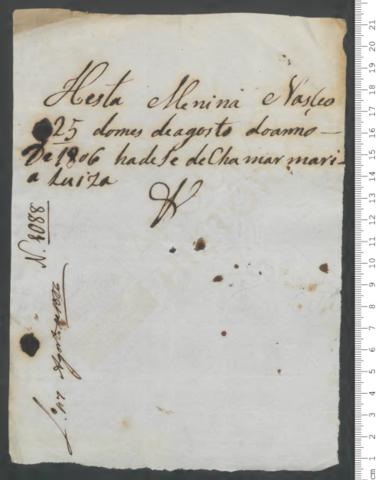 Hesta Menina Nasceo
25 domes deagosto doanno —
De 1806 hadese deChamar mari-
a Luiza
N. 1088